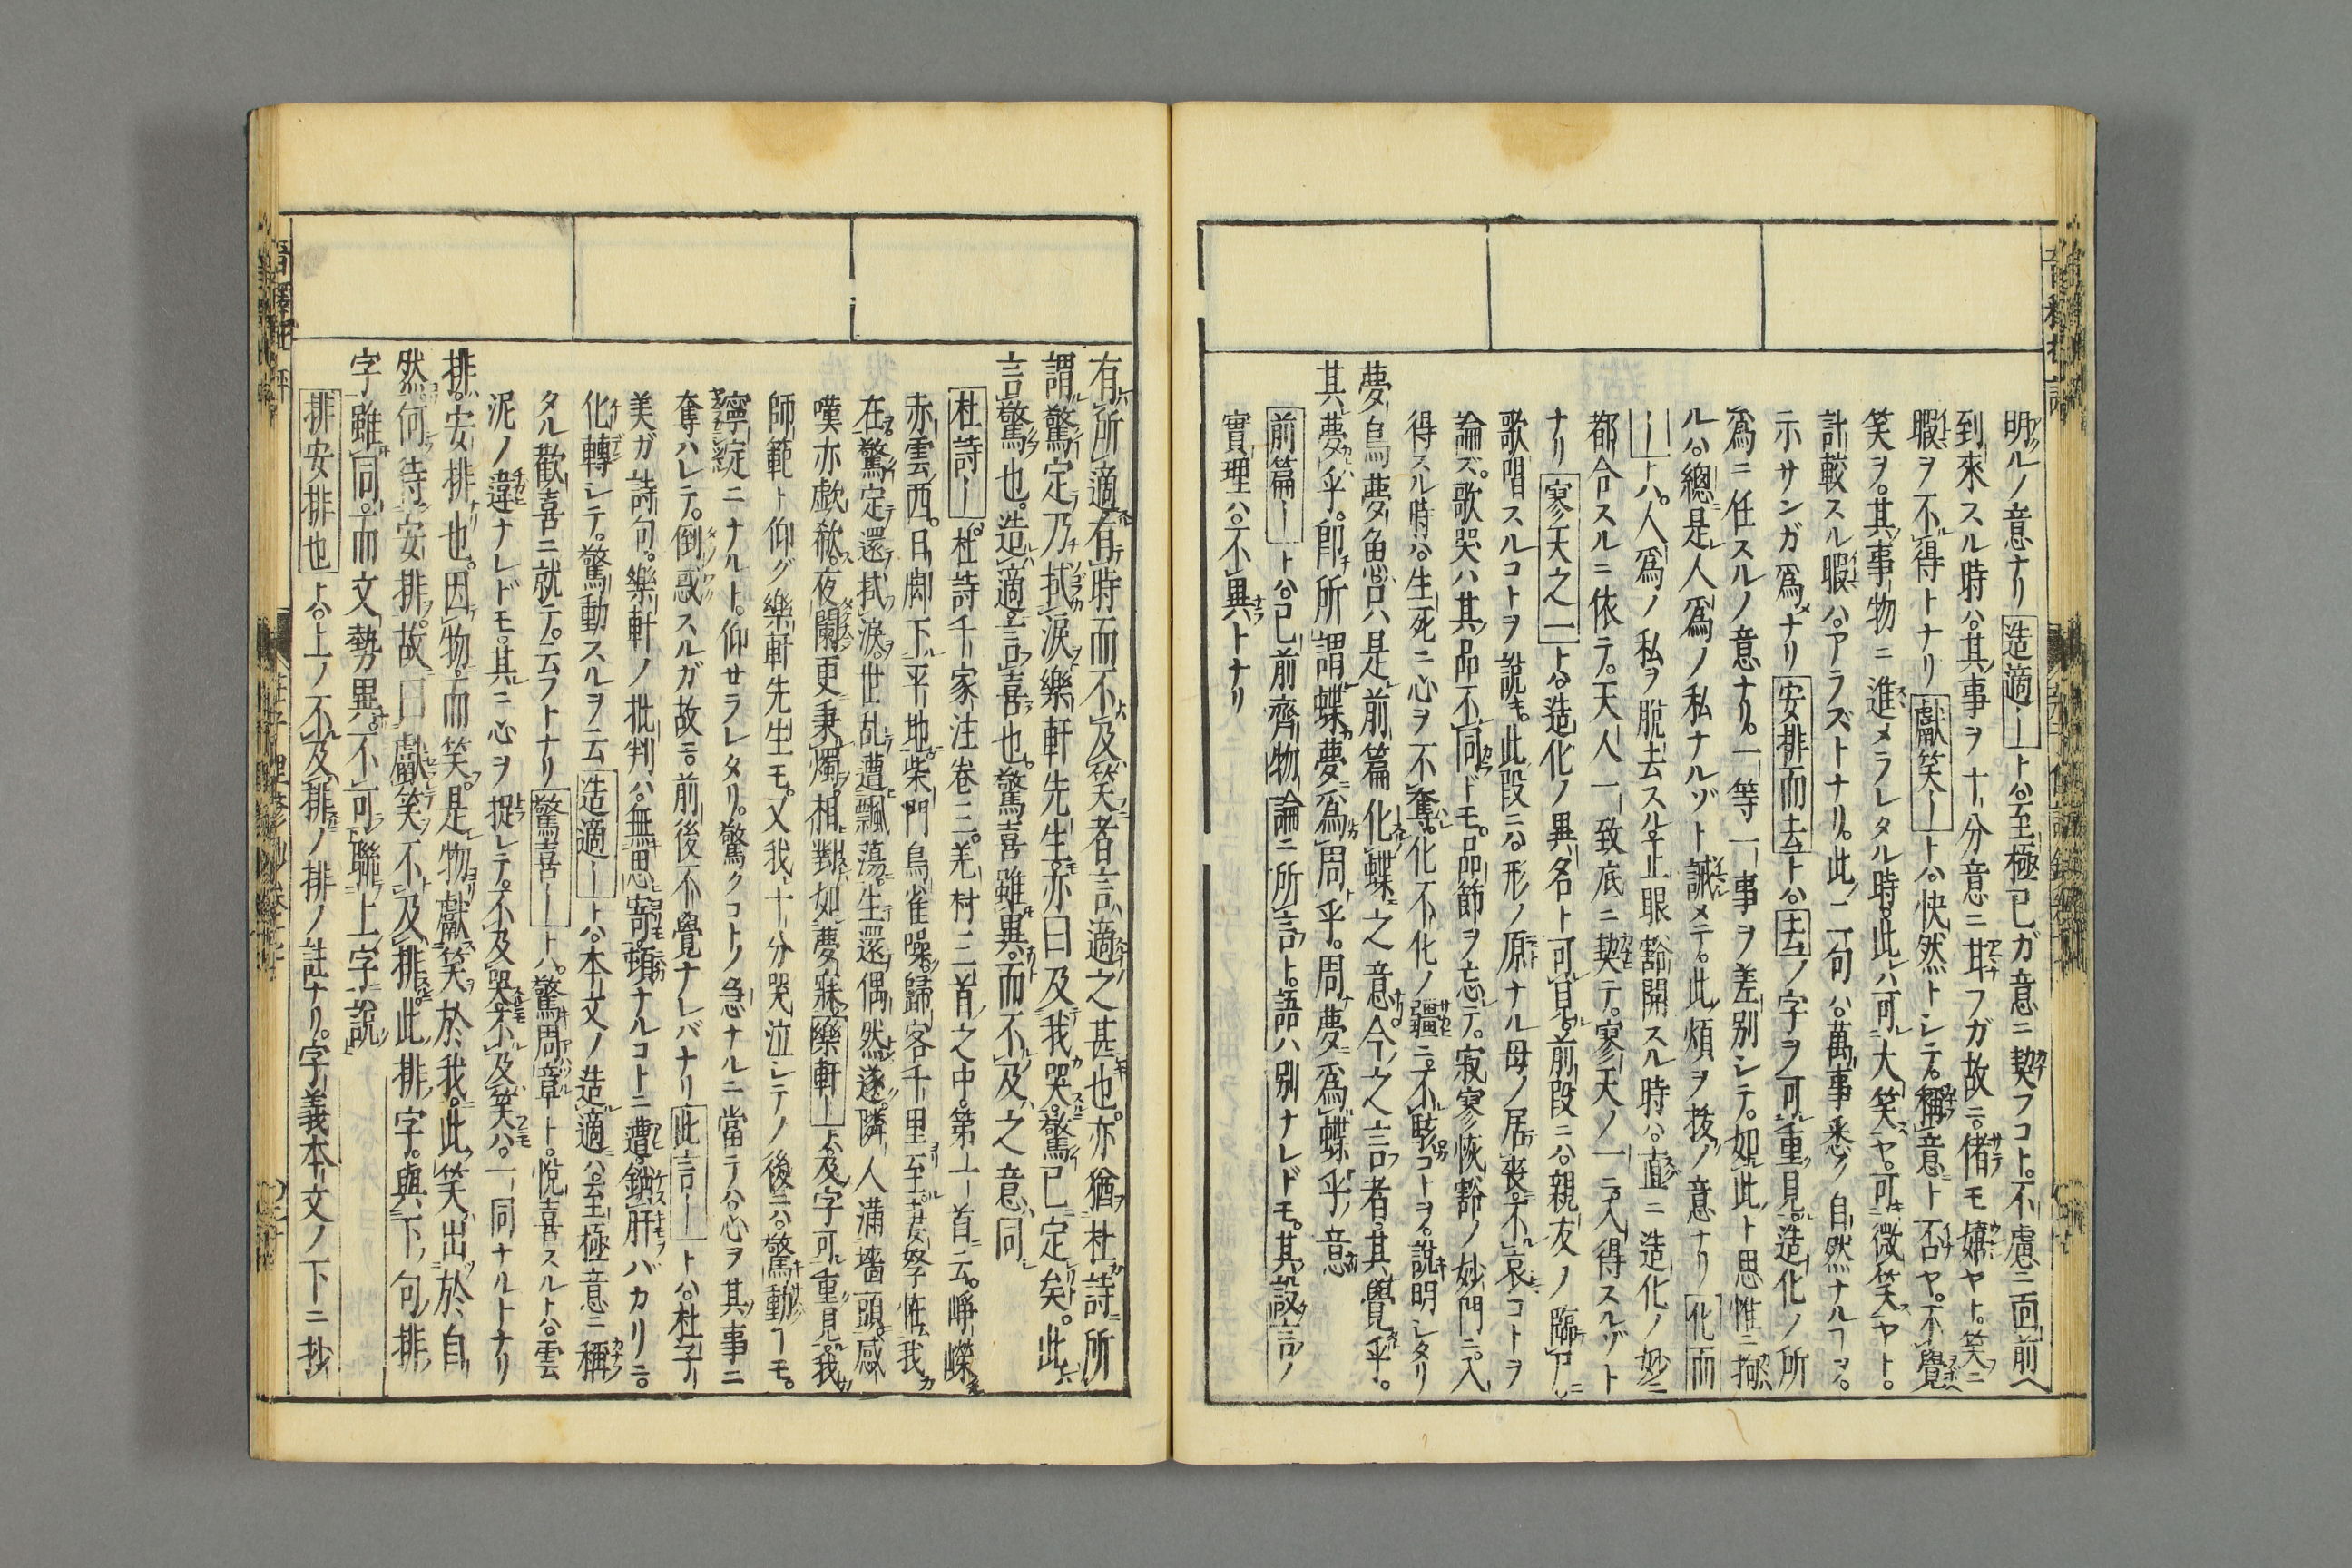 明ルノ意ナリ造適ートハ。至極已ガ意ニ契フコト。不慮ニ面前ヘ
到來スル時ハ。其事ヲ十分意ニ耳フガ故ニ。偖モ嬉ヤト。笑ニ
暇ヲ不得トナリ獻笑ートハ。快然トシテ。稱意ト否ヤ。不覺
笑ヲ。其事物ニ進メラレタル時。此ハ可大笑ヤ。可微笑ヤト。
計較スル暇ハ。アラズトナリ。此二句ハ。萬事悉ク自然ナルヿヲ。
示サンガ爲メナリ安排而去トハ。去ノ字ヲ可重見。造化ノ所
爲ニ任スルノ意ナリ。一等一事ヲ差別シテ。如此ト思惟ニ
ルハ。總是人爲ノ私ナルゾト誡メテ。此煩ヲ拔ノ意ナリ化而
ートハ。人爲ノ私ヲ脱去スル。正眼豁開スル時ハ。直ニ造化ノ妙ニ
都合スルニ依テ。天人一致底ニ契テ。寥天ノ一ニ。入得スルゾト
ナリ寥天之一トハ。造化ノ異名ト可見。前段ニハ。親友ノ臨尸ニ
歌唱スルコトヲ説キ。此段ニハ。形ノ原ナル母ノ居喪。不哀コトヲ
論ズ。歌哭ハ其品不同ドモ。品節ヲ忘テ。寂寥恢豁ノ妙門ニ。入
得スル時ハ。生死ニ心ヲ不奪。化不化ノ疆ニ。不駭コトヲ。説明シタリ
夢鳥夢魚。只是前篇化蝶之意。今之言者。其覺乎。
其夢乎。即所謂蝶夢爲周乎。周夢爲蝶乎意
前篇ートハ。已前齊物論ニ所言ト。語ハ別ナレドモ。其設言ノ
實理ハ。不異トナリ
有所適。有時而不及笑者。言適之甚也。亦猶杜詩所
謂驚定乃拭涙。樂軒先生亦曰及我哭。驚已定矣。此
言驚也。造適。言喜也。驚喜雖異。而不及之意同
杜詩ー杜詩千家注卷三。羌村三首之中。第一首ニ云。崢嶸
赤雲西。日脚下平地。柴門鳥雀噪。歸客千里至。妻孥怪我
在。驚定還拭淚。世乱遭飄蕩。生還偶然遂。隣人滿墻頭。感
嘆亦歔欷。夜闌更秉燭。相對如夢寐。樂軒ートハ。及字可重見。我
師範ト仰グ樂軒先生モ。又我十分哭泣シテノ後ニハ。驚動ーモ。
寧定ニナルト。仰セラレタリ。驚クコトノ急ナルニ當テハ。心ヲ其事ニ
奪ハレテ。倒惑スルガ故ニ。前後不覺ナレバナリ此言ートハ。杜子
美ガ詩句。樂軒ノ批判ハ。無思寄。頓ナルコトニ遭。銷肝バカリニ。
化轉シテ。驚動スルヲ云造適ートハ。本文ノ造適ハ。至極意ニ稱
タル歡喜ニ就テ。云フトナリ驚喜ートハ。驚周章ト。悅喜スルトハ。雲
泥ノ違ナレドモ。其ニ心ヲ捉レテ。不及哭。不及笑ハ。一同ナルトナリ
排。安排也。因物。而笑。是物獻笑於我。此笑出於自
然。何待安排。故曰獻笑不及排。此排字。與下句排
字雖同。而文勢異。不可聯上字說
排安排也トハ。上ノ不及排ノ排ノ註ナリ。字義本文ノ下ニ抄